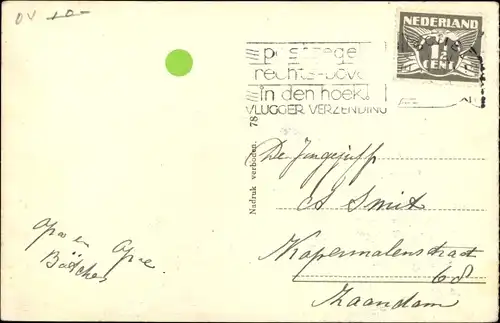 OV 10-
NEDERLAND
1½
CENT
postzegel
rechts-bove
in den hoek!
VLUGGER VERZENDING
Nadruk verboden. 78
De Jongejuff
A Smit
Kapermolenstraat
68
Zaandam
Opoe en Opoe